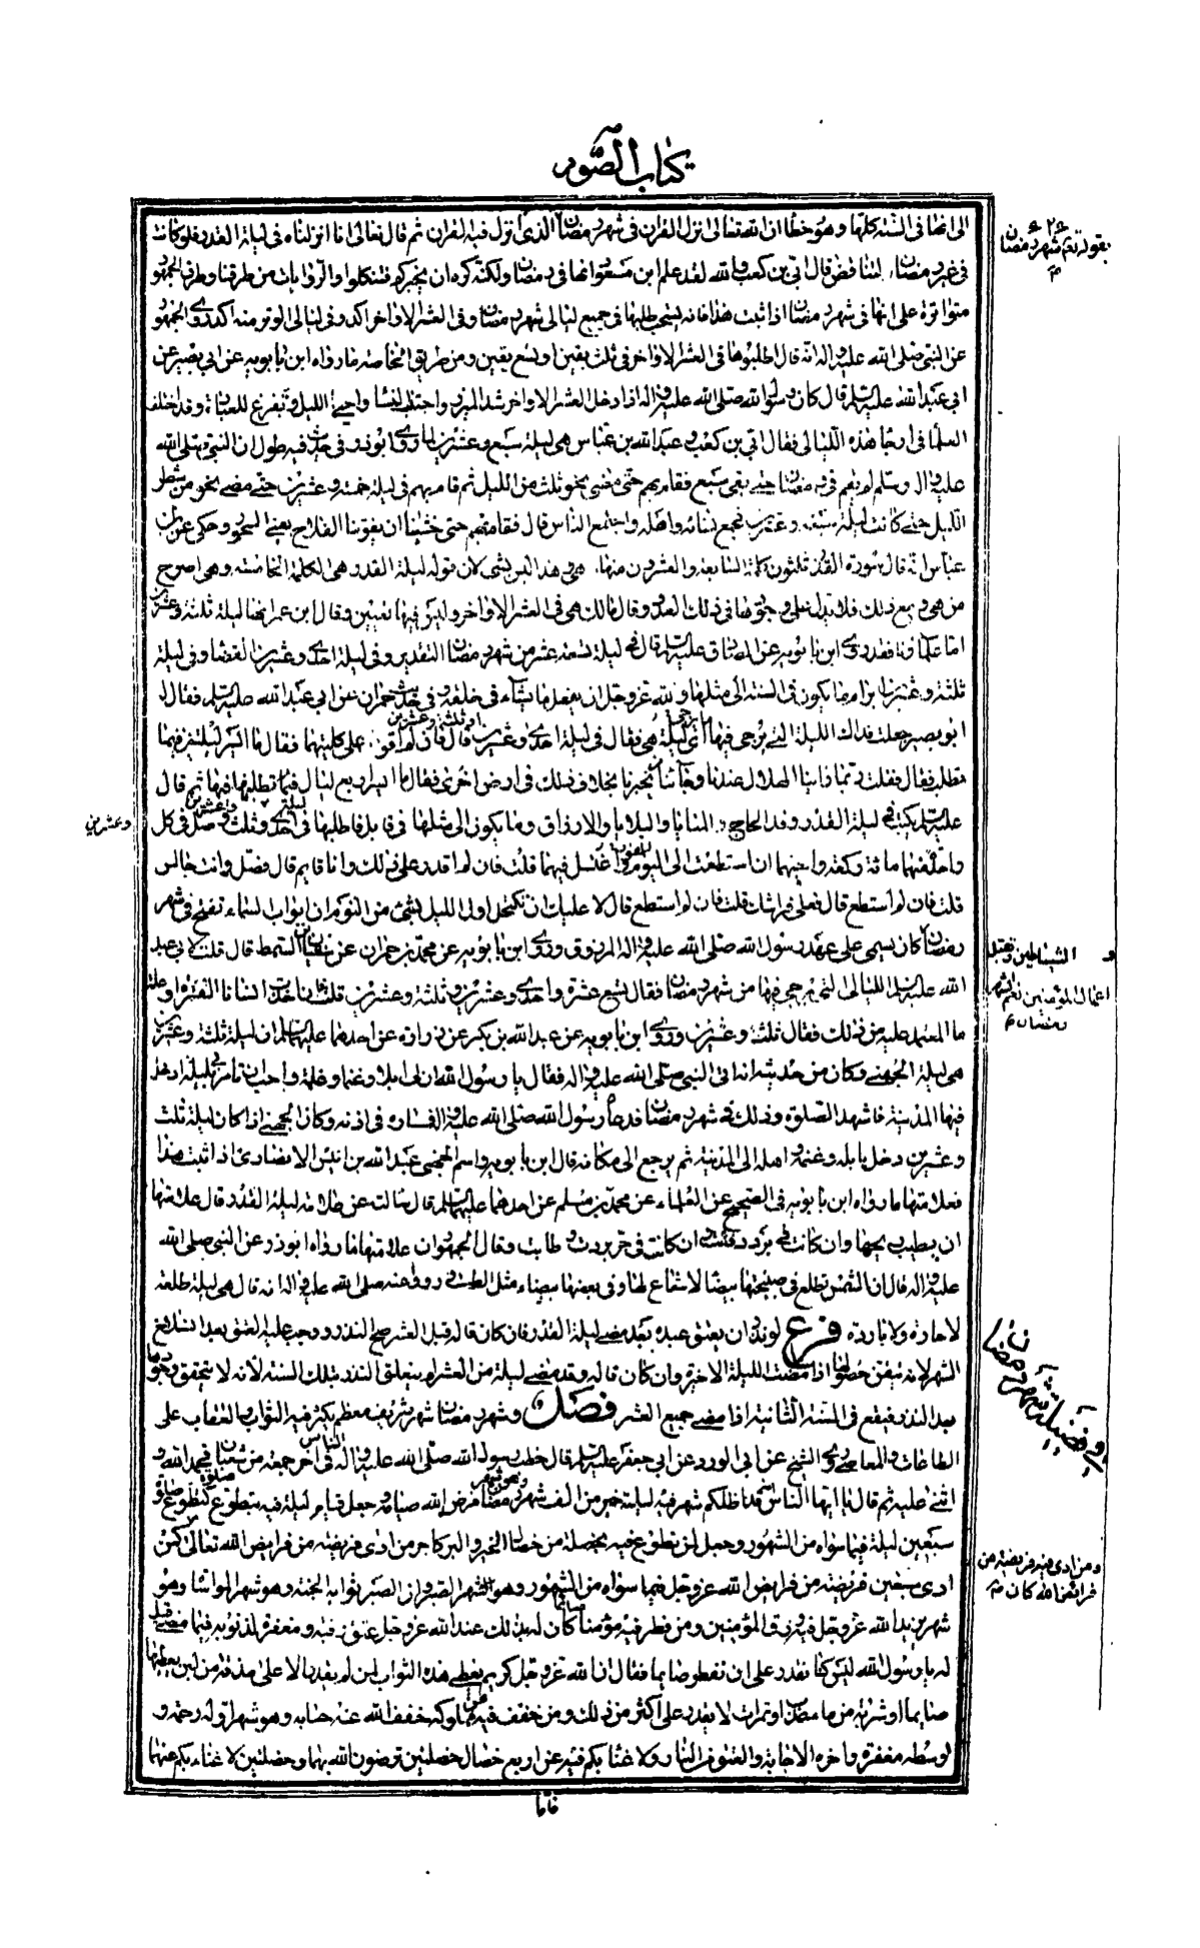 كتاب الصوم
الى انها فى السنة كلها وهو خطأ ان الله تعالى انزل القران فى شهر رمضان الذى انزل فيه القران ثم قال تعالى انا انزلناه فى ليلة القدر فلو كانت
فى غير رمضان لتناقض قال ابى بن كعب والله لقد علم ابن مسعود انها فى رمضان ولكنه كره ان يخبركم فتتكلوا والروايات من طرقنا وطرق الجمهور
متواترة على انها فى شهر رمضان اذا ثبت هذا فانه يستحب طلبها فى جميع ليالى شهر رمضان وفى العشر الاواخر اكد وفى ليالى الوتر منه اكد روى الجمهور
عن النبى صلى الله عليه واله انه قال اطلبوها فى العشر الاواخر فى ثلث بقين او سبع بقين ومن طريق الخاصة ما رواه ابن بابويه عن ابى بصير عن
ابى عبد الله عليه السلم قال كان رسول الله صلى الله عليه واله اذا دخل العشر الاواخر شد الميزر واجتنب النساء واحيى الليل وتفرغ للعبادة وقد اختلف
العلماء فى ارجا هذه الليالى فقال ابى بن كعب وعبد الله بن عباس هى ليلة سبع وعشرين لما روى ابوذر فى حديث فيه طول ان النبى صلى الله
عليه واله وسلم لم يقم فى رمضان حتى بقى سبع فقام بهم حتى مضى نحو ثلث من الليل ثم قام بهم فى ليلة خمسة وعشرين حتى مضى نحو من شطر
الليل حتى كانت ليلة سبعة وعشرين فجمع نسائه واهله واجتمع الناس قال فقام بهم حتى خشينا ان يفوتنا الفلاح يعنى السحور وحكى عن ابن
عباس انه قال سورة القدر ثلثون كلمة السابعة والعشرون منها هى وهذا ليس بشئ لان قوله ليلة القدر هى الكلمة الخامسة وهى اصرح
من هى ومع ذلك فلا تدل على وجودها فى ذلك العدد وقال مالك هى فى العشر الاواخر وليس فيها تعيين وقال ابن عمر انها ليلة ثلثة وعشرين
اما علماؤنا فقد روى ابن بابويه عن الصادق عليه السلم قال فى ليلة تسعة عشر من شهر رمضان التقدير وفى ليلة احدى وعشرين القضاء وفى ليلة
ثلثة وعشرين ابرام ما يكون فى السنة الى مثلها ولله عز وجل ان يفعل ما يشاء فى خلقه وفى حديث حمران عن ابى عبد الله عليه السلم فقال له
ابو بصير جعلت فداك الليلة التى يرجى فيها ما يرجى اى ليلة هى فقال فى ليلة احدى وعشرين او ثلثة وعشرين قال فان لم اقو على كلتيهما فقال ما ايسر ليلتين فيما
تطلب فقال فقلت ربما رأينا الهلال عندنا وجاءنا من يخبرنا بخلاف ذلك فى ارض اخرى فقال ما ايسر اربع ليال فيما تطلبها فيها ثم قال
عليه السلم يكتب فى ليلة القدر وفد الحاج و المنايا والبلايا والارزاق وما يكون الى مثلها فى قابل فاطلبها فى ليلة احدى وثلث وعشرين وصل فى كل
واحدة منهما مائة ركعة واحيهما ان استطعت الى النور واغتسل فيهما قلت فان لم اقدر على ذلك وانا قايم قال فصل وانت جالس
قلت فان لم استطع قال فعلى فراشك قلت فان لم استطع قال لا عليك ان تكتحل اول الليل بشئ من النوم ان ابواب السماء تفتح فى شهر
رمضان كان يسمى على عهد رسول الله صلى الله عليه واله المرزوق وروى ابن بابويه عن محمد بن حمران عن سفيان بن السمط قال قلت لابى عبد
الله عليه السلم الليالى التى يرجى فيها من شهر رمضان فقال تسع عشرة واحدى وعشرين وثلثة وعشرين قلت فان اخذت انسانا الفترة او علة
ما المعتمد عليه من ذلك فقال ثلثة وعشرين وروى ابن بابويه عن عبد الله بن بكير عن زرارة عن احدهما عليهما السلم ان ليلة ثلثة وعشرين
هى ليلة الجهنى وكان من حديثه انه اتى النبى صلى الله عليه واله فقال يا رسول الله ان لى ابلا وغنما وغلمة واحب ان تأمرنى بليلة ادخل
فيها المدينة فاشهد الصلوة وذلك فى شهر رمضان فدعاه رسول الله صلى الله عليه واله فساره فى اذنه وكان الجهنى اذا كان ليلة ثلث
وعشرين دخل بابله وغنمه واهله الى المدينة ثم يرجع الى مكانه قال ابن بابويه واسم الجهنى عبد الله بن انيس الانصارى اذا ثبت هذا
فعلامتها ما رواه ابن بابويه فى الصحيح عن العلاء عن محمد بن مسلم عن احدهما عليهما السلم قال سالته عن علامة ليلة القدر قال علامتها
ان يطيب ريحها وان كانت فى برد دفئت وان كانت فى حر بردت وطابت وقال الجمهور ان علامتها ما رواه ابوذر عن النبى صلى الله
عليه واله قال ان الشمس تطلع فى صبيحتها بيضاء لا شعاع لها وفى بعضها بيضاء مثل الطست وروى عنه صلى الله عليه واله انه قال هى ليلة طلقة
لا حارة ولا باردة فرع لو نذر ان يعتق عبده بعد مضى ليلة القدر فان كان قاله قبل العشر صح النذر ووجب عليه العتق بعد انسلاخ
الشهر لانه تيقن حصولها اذا مضت الليلة الاخيرة وان كان قاله وقد مضى ليلة من العشر لم يتعلق النذر بتلك السنة لانه لا يتحقق وجودها
بعد النذر فيقع فى السنة الثانية اذا مضى جميع العشر فصل وشهر رمضان شهر شريف معظم يكثر فيه الثواب والعقاب على
الطاعات والمعاصى روى الشيخ عن ابى الورد عن ابى جعفر عليه السلم قال خطب رسول الله صلى الله عليه واله الناس فى اخر جمعة من شعبان فحمد الله و
اثنى عليه ثم قال يا ايها الناس قد اظلكم شهر فيه ليلة خير من الف شهر وهو شهر رمضان فرض الله صيامه وجعل قيام ليلة فيه بتطوع صلوة كتطوع صلوة
سبعين ليلة فيما سواه من الشهور وجعل لمن تطوع فيه بخصلة من خصال الخير والبر كاجر من ادى فريضة من فرايض الله تعالى كمن
ادى سبعين فريضة من فرايض الله عز وجل فيما سواه من الشهور وهو شهر الصبر وان الصبر ثوابه الجنة وهو شهر المواساة وهو
شهر يزيد الله عز وجل فيه رزق المؤمنين ومن فطر فيه مؤمنا صائما كان له بذلك عند الله عز وجل عتق رقبة ومغفرة لذنوبه فيما مضى قيل
له يا رسول الله ليس كلنا نقدر على ان نفطر صايما فقال ان الله عز وجل كريم يعطى هذه الثواب لمن لم يقدر الا على مذقة من لبن يعطيها
صايما او شربة من ماء عذب او تمرات لا يقدر على اكثر من ذلك ومن خفف فيه عن مملوكه خفف الله عنه حسابه وهو شهر اوله رحمة و
اوسطه مغفرة واخره الاجابة والعتق من النار ولا غناء بكم فيه عن اربع خصال خصلتين ترضون الله بهما وخصلتين لا غناء بكم عنهما
فاما
بقوله تعالى شهر رمضان
وعشرين
و الشياطين وتقبل
اعمال المؤمنين نعم الشهر
رمضان
فى فضيلة شهر رمضان
ومن ادى فيه فريضة من
فرائض الله كان